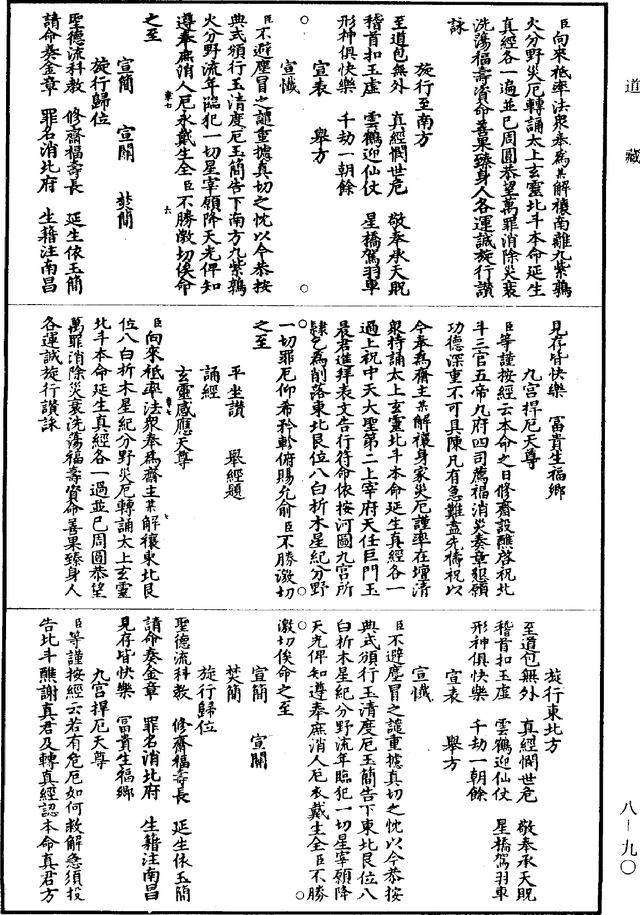 道藏
臣向來祇率法衆奉爲某解禳南離九紫鶉
火分野災厄轉誦太上玄靈北斗本命延生
真經各一遍並已周圓恭望萬罪消除災衰
洗蕩福壽資命善果臻身人各運誠旋行讚
詠
旋行至南方
至道包無外　真經憫世危　敬奉承天貺
稽首扣玉虛　雲鶴迎仙仗　星橋駕羽車
形神俱快樂　千劫一朝餘
宣表　舉方
宣懺
臣不避塵冒之譴重攄真切之忱以今恭按
典式頒行玉清度厄玉簡告下南方九紫鶉
火分野流年臨犯一切星宰願降天光俾知
遵奉庶消人厄永戴生全臣不勝激切俟命
之至
宣簡　宣關　焚簡
旋行歸位
聖德流科教　修齋福壽長　延生依玉簡
請命奏金章　罪名消北府　生籍注南昌
見存皆快樂　冨貴生福鄉
九宮捍厄天尊
臣等謹按經云本命之日修齋設醮啓祝北
斗三官五帝九府四司薦福消災奏章懇願
功德深重不可具陳凡有急難盍先禱祝以
今奉爲齋主某解禳身家災厄謹率在壇清
衆持誦太上玄靈北斗本命延生真經各一
過上祝中天大聖第二上宰府天任巨門玉
晨君進拜表文告行符命依按河圖九宮所
隸乞爲削落東北艮位八白折木星紀分野
一切罪厄仰希矜軫俯賜允俞臣不勝激切
之至
平坐讚　舉經題
誦經
玄靈感應天尊
臣向來祇率法衆奉爲齋主某解禳東北艮
位八白折木星紀分野災厄轉誦太上玄靈
北斗本命延生真經各一過並已周圓恭望
萬罪消除災衰洗蕩福壽資命善果臻身人
各運誠旋行讚詠
旋行東北方
至道包無外　真經憫世危　敬奉承天貺
稽首扣玉虛　雲鶴迎仙仗　星橋駕羽車
形神俱快樂　千劫一朝餘
宣表　舉方
宣懺
臣不避塵冒之譴重攄真切之忱以今恭按
典式頒行玉清度厄玉簡告下東北艮位八
白折木星紀分野流年臨犯一切星宰願降
天光俾知遵奉庶消人厄永戴生全臣不勝
激切俟命之至
宣簡　宣關
焚簡
旋行歸位
聖德流科教　修齋福壽長　延生依玉簡
請命奏金章　罪名消北府　生籍注南昌
見存皆快樂　冨貴生福鄉
九宮捍厄天尊
臣等謹按經云若有危厄如何救解急須投
告北斗醮謝真君及轉真經認本命真君方
八－九〇